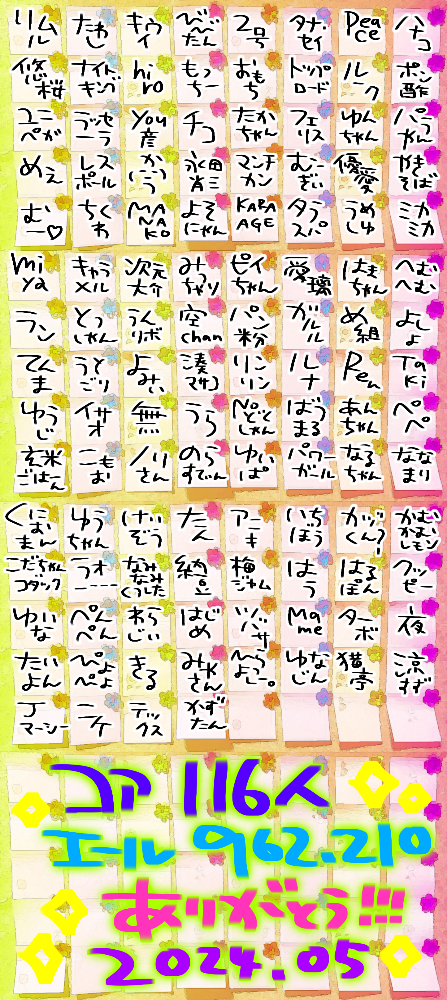 リムル たわし キウイ びびたん 2号 タナセイ Peace ハナコ
悠桜 ナイトキング hiro もっちー おもち トップロード ルーク ポン酢
ユニペガ デッセコラ you彦 チコ たかちゃん フェリス ゆんちゃん パラちゃん
めぇ レスポール かいとう 永田省三 マンチカン むーこぎい 優愛 かきそば
むー♡ ちくわ MANAKO よぞにゃん KARAAGE タラスパ うめしゅ ミカミカ
Miya キャラメル 次元大介 みっちゃり ピイちゃん 愛璃 はまちゃん へむへむ
ラン とぅしゃん うんリボ 空chan パン粉 ガルル め組 よしょ
てんま うどごり よみぃ 湊マサコ リンリン ルナ Ren Taki
ゆうじ イサオ 無 うら Nどどしゃん ばうまる あんちゃん ペペ
玄米ごはん こもお ノリさん のらすでん ゆいぱ パワーガール なるちゃん ななまり
くにおまん ゆうちゃん けいぞう たん アニキ いちほう カッくん？！ かむかむレモン
こだちゃんコダック ラオーーー なみなみくつした 納豆 梅ジャム はう はるぽん クッピー
ゆいな ぺんぺん わらじい はじめ ツバサ Mame ターボ 夜
たいよん ぴよぺよ きる みKさん へらよこー。 ゆなじん 猫亭 涼すず
Jマーシー ニケ テックス かずたん
コア 116人
エール 962.210
ありがとう!!!
2024.05